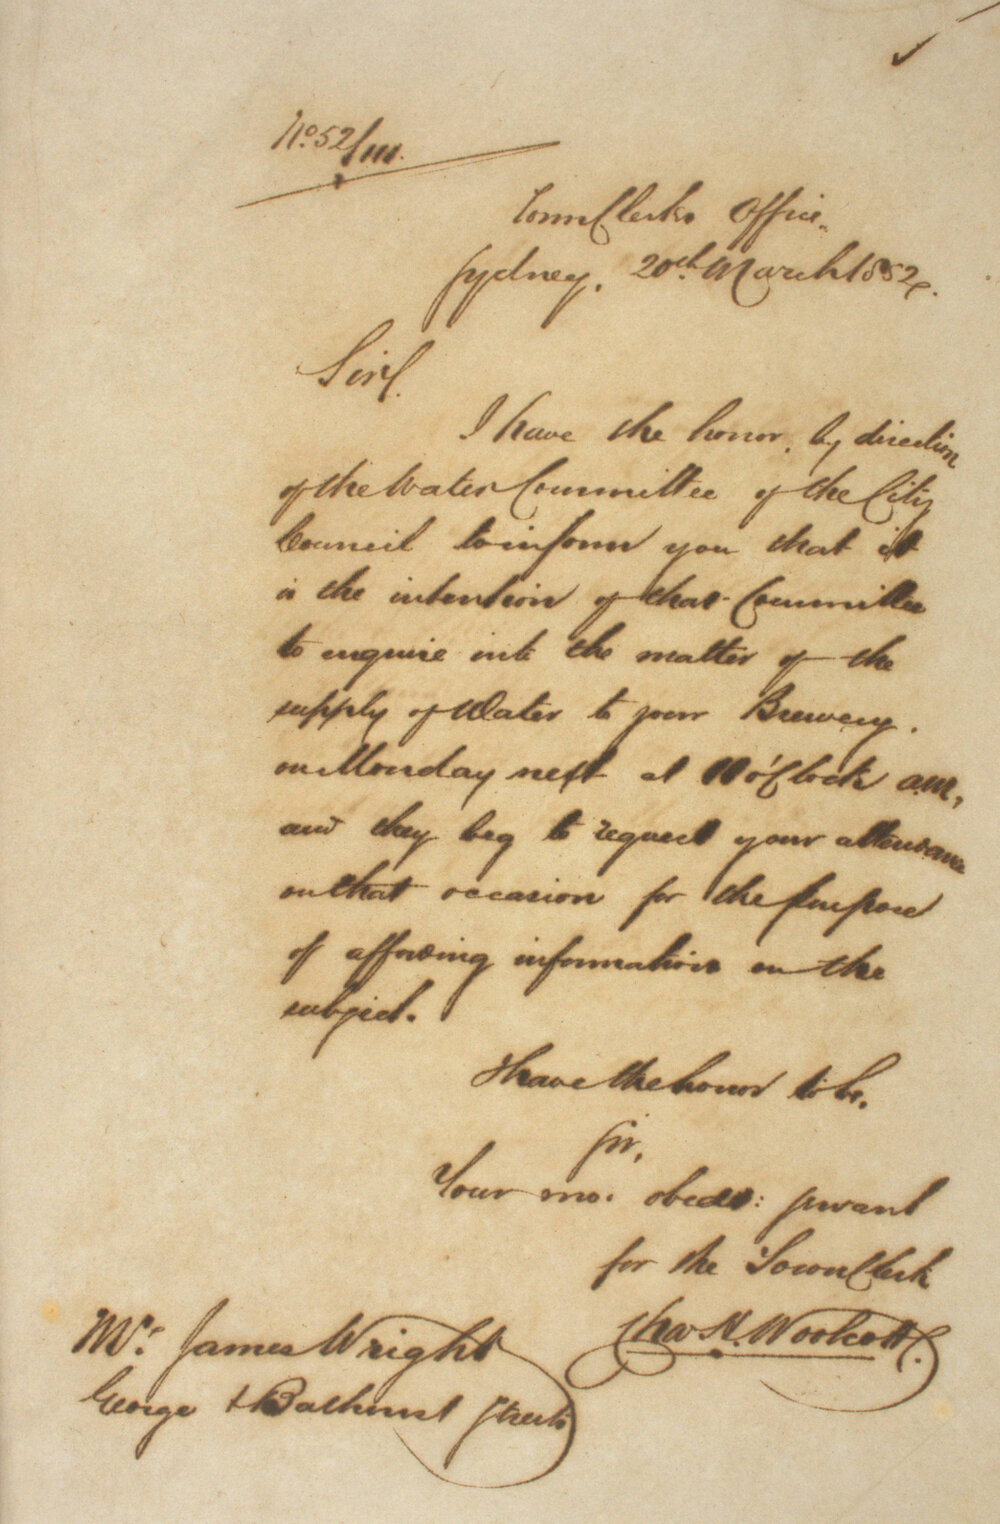 No. 52/111.
Town Clerks Office.
Sydney, 20th March 1852.
Sir/.
I have the honor, by direction
of the Water Committee of the City
Council to inform you that it
is the intention of that Committee
to enquire into the matter of the
supply of Water to your Brewery.
on Monday next at 11 o'Clock a.m,
and they beg to request your attendance
on that occasion for the purpose
of affording information on the
subject.
I have the honor to be.
Sir,
Your mo: obedt: servant
for the Town Clerk
Chas H. Woolcott.
Mr. James Wright
George & Bathurst Streets